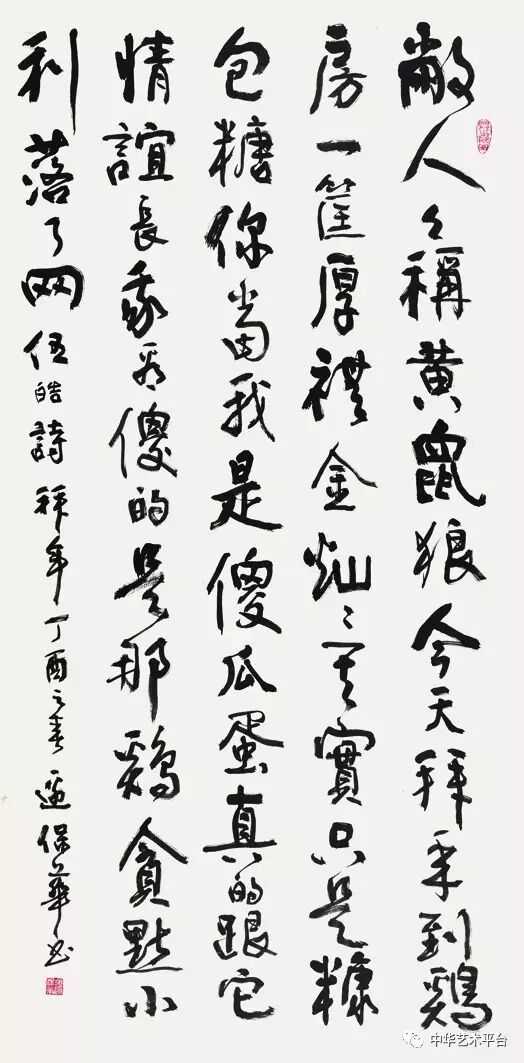 敝人々稱黄鼠狼今天拜年到鷄
房一筐厚禮金灿々其實只是糠
包糖你當我是傻瓜蛋真的跟它
情誼長我看傻的是那鷄貪點小
利落了网伍皓詩拜年丁酉之春保華书
中华艺术平台